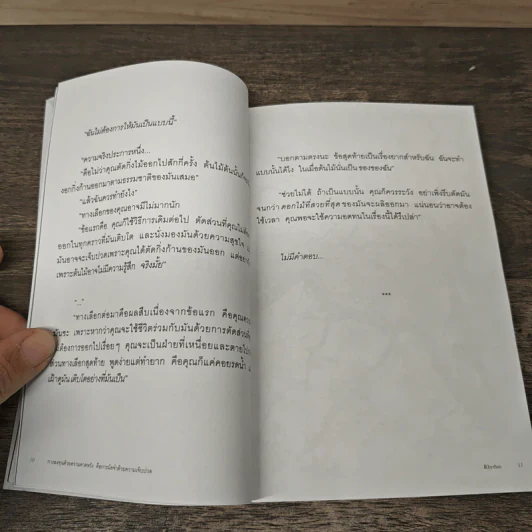 "ฉันไม่ต้องการให้มันเป็นแบบนี้"
"ความจริงประการหนึ่ง...
"คือไม่ว่าคุณจะตัดกิ่งไม้ออกไปสักกี่ครั้ง ต้นไม้ต้นนั้นก็
งอกกิ่งก้านออกมาตามธรรมชาติของมันเสมอ"
"แล้วฉันควรทำยังไง"
"ทางเลือกของคุณอาจมีไม่มากนัก
"ข้อแรกคือ คุณก็ใช้วิธีการเดิมต่อไป ตัดส่วนที่คุณไม่
ออกในทุกคราวที่มันเติบโต และนั่งมองมันด้วยความสุขใจ
มันอาจจะเจ็บปวดเพราะคุณได้ตัดกิ่งก้านของมันออก แต่
เพราะต้นไม้อาจไม่มีความรู้สึก จริงมั้ย"
"..."
"ทางเลือกต่อมาคือผลสืบเนื่องจากข้อแรก คือคุณ
มันซะ เพราะหากว่าคุณจะใช้ชีวิตร่วมกับมันด้วยการตัดส่วน
ต้องการออกไปเรื่อยๆ คุณจะเป็นฝ่ายที่เหนื่อยและตายไป
ส่วนทางเลือกสุดท้าย พูดง่ายแต่ทำยาก คือคุณก็แค่คอยรดน้ำ
เฝ้าดูมันเติบโตอย่างที่มันเป็น"
10 การลงทุนด้วยความคาดหวัง คือการมัดจำด้วยความเจ็บปวด
"บอกตามตรงนะ ข้อสุดท้ายเป็นเรื่องยากสำหรับฉัน ฉันจะทำ
แบบนั้นได้ไง ในเมื่อต้นไม้นั่นเป็นของของฉัน"
"ช่วยไม่ได้ ถ้าเป็นแบบนั้น คุณก็ควรระวัง อย่าเพิ่งรีบตัดมัน
จนกว่าดอกไม้ที่สวยที่สุดของมันจะผลิออกมา แน่นอนว่าอาจต้อง
ใช้เวลา คุณพอจะใช้ความอดทนในเรื่องนี้ได้รึเปล่า"
ไม่มีคำตอบ...
***
11